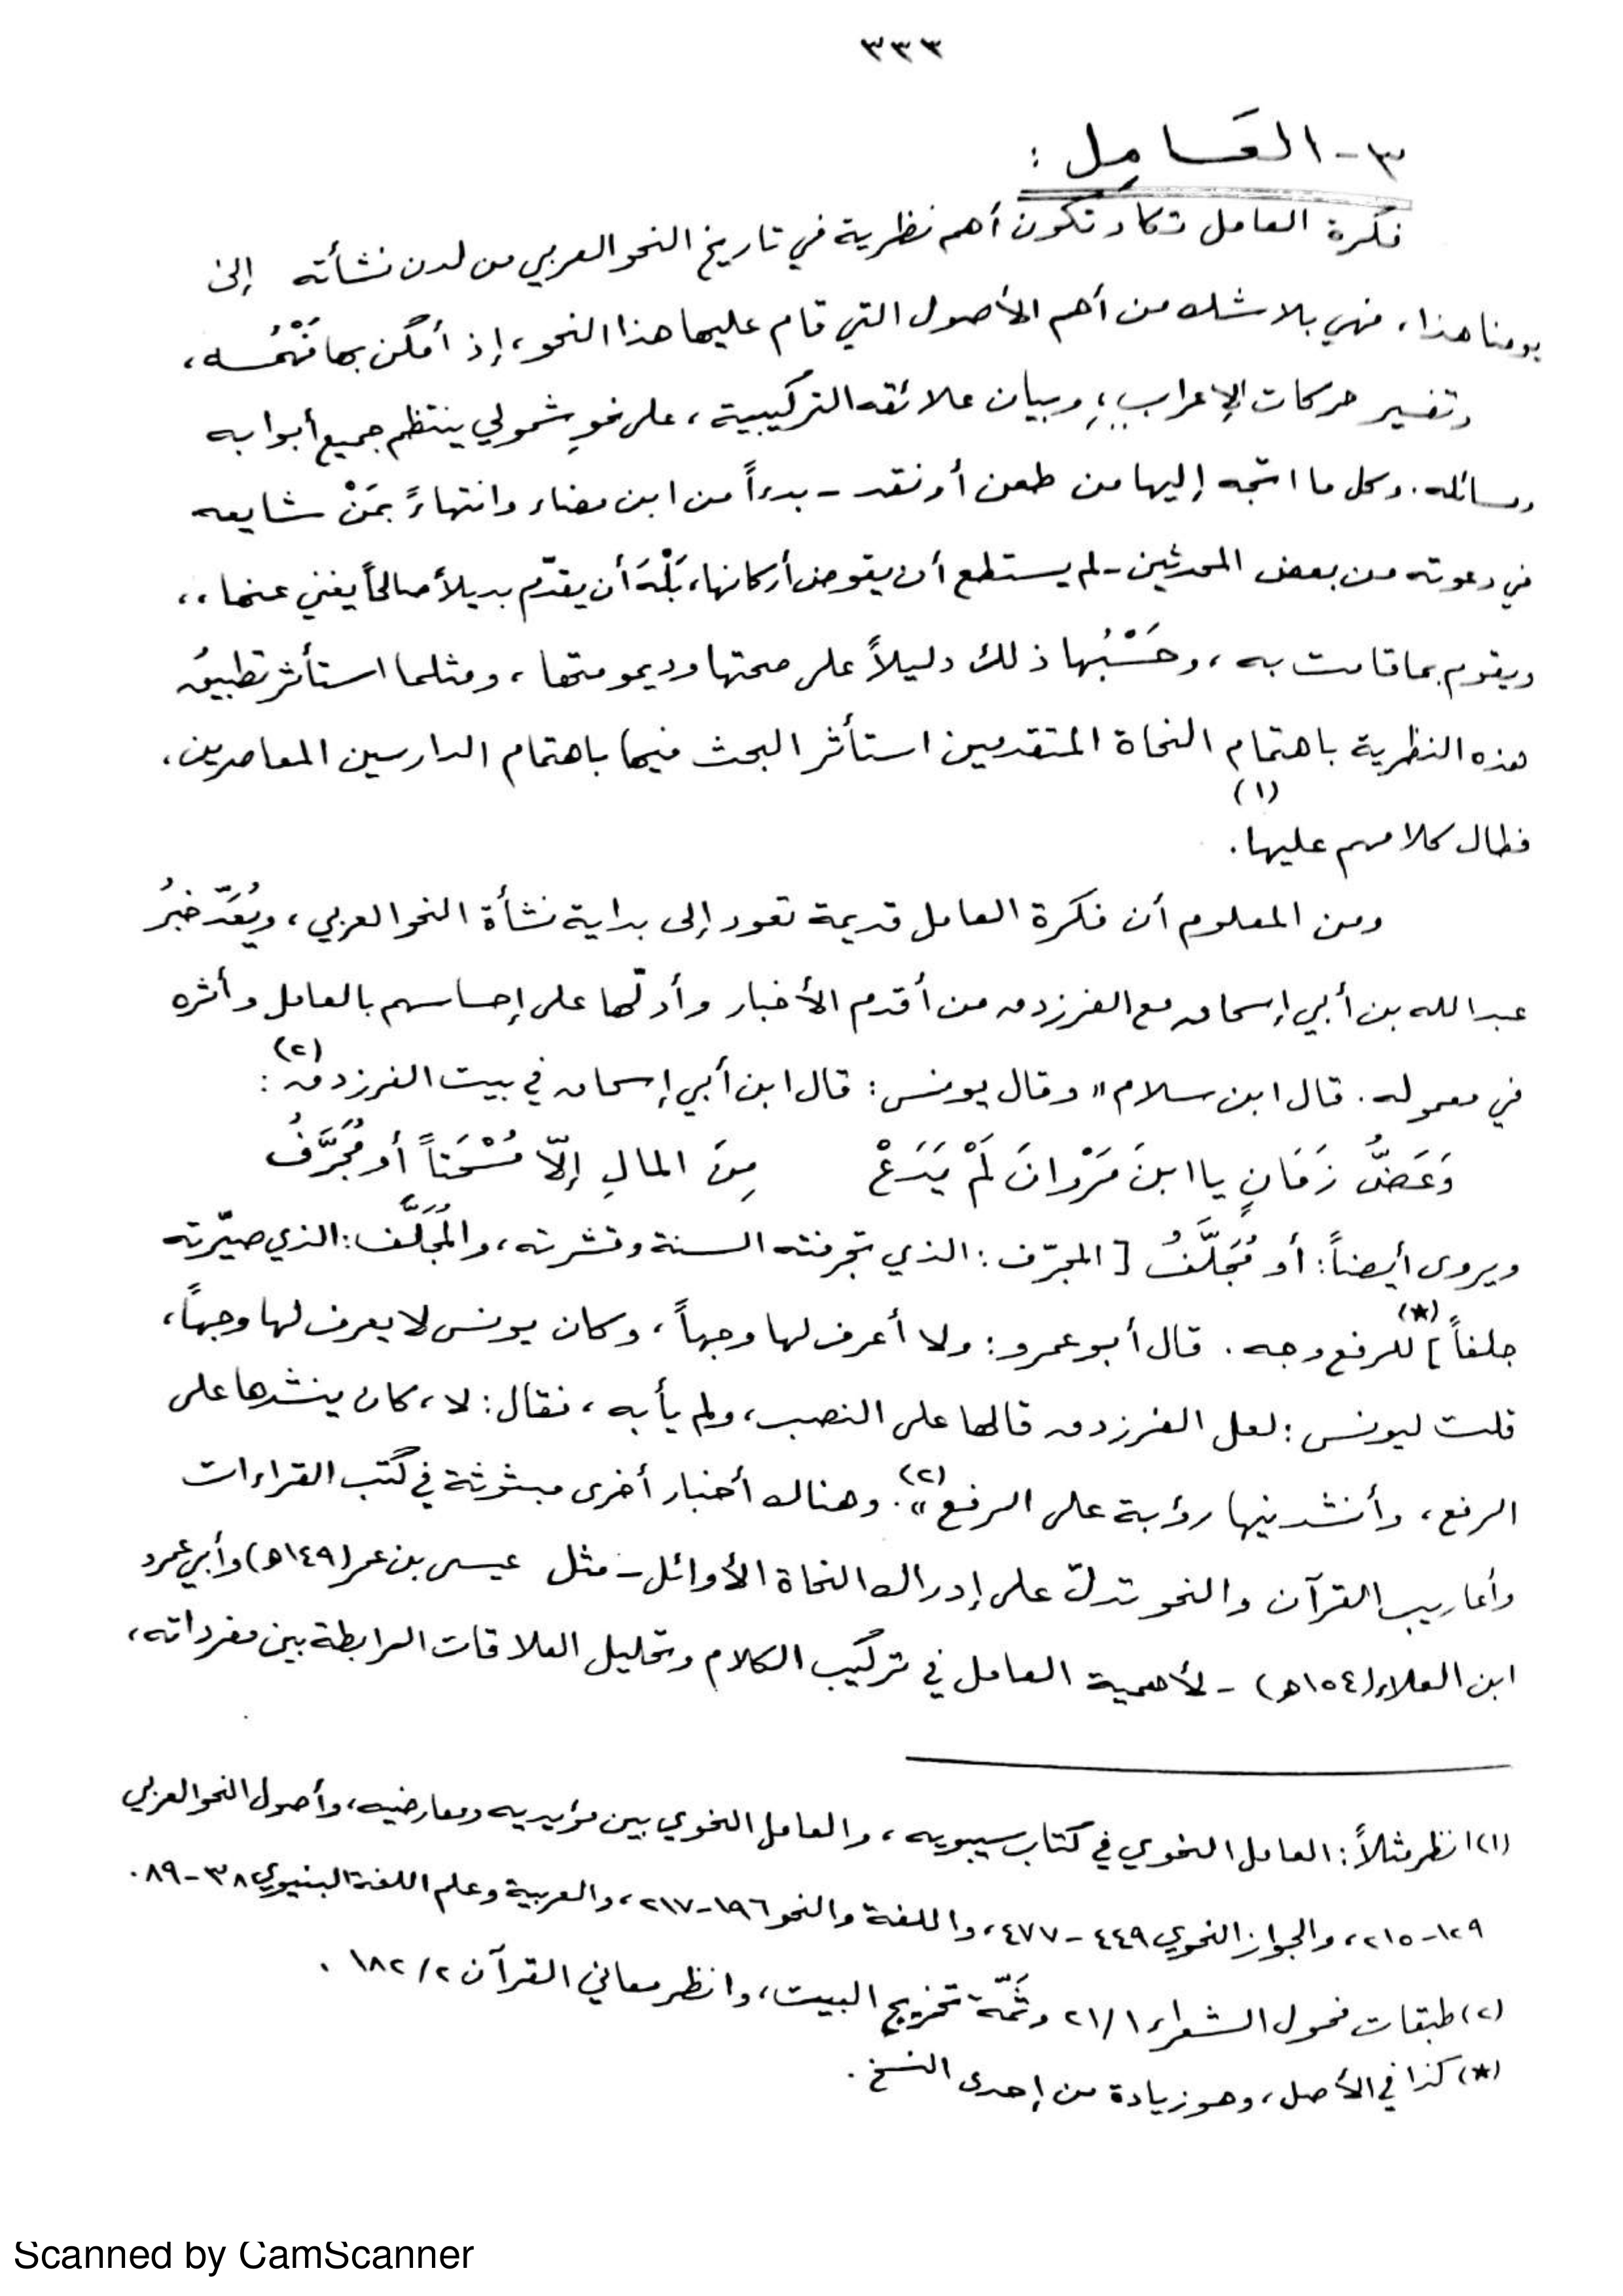 ٣٣٣
٣- العَامِل :
فكرة العامل تكاد تكون أهم نظرية في تاريخ النحو العربي من لدن نشأته إلى
يومنا هذا، فهي بلا شك من أهم الأصول التي قام عليها هذا النحو، إذ أمكن بها فَهْمُه،
وتفسير حركات الإعراب، وبيان علائقه التركيبية، على نحوٍ شمولي ينتظم جميع أبوابه
ومسائله. وكل ما اتجه إليها من طعن أو نقد - بدءاً من ابن مضاء وانتهاءً بمَنْ شايعه
في دعوته من بعض المحدثين - لم يستطع أن يقوض أركانها، بَلْهَ أن يقدّم بديلاً صالحاً يغني عنها،،
ويقوم بما قامت به، وحَسْبُها ذلك دليلاً على صحتها وديمومتها، ومثلما استأثر تطبيقُ
هذه النظرية باهتمام النحاة المتقدمين استأثر البحث فيها باهتمام الدارسين المعاصرين،
فطال كلامهم عليها.(١)
ومن المعلوم أن فكرة العامل قديمة تعود إلى بداية نشأة النحو العربي، ويُعَدّ خبرُ
عبدالله بن أبي إسحاق مع الفرزدق من أقدم الأخبار وأدلّها على إحساسهم بالعامل وأثره
في معموله. قال ابن سلام " وقال يونس: قال ابن أبي إسحاق في بيت الفرزدق(٢):
وَعَضُّ زَمَانٍ يا ابنَ مَرْوانَ لَمْ يَدَعْ مِنَ المالِ إلّا مُسْحَتاً أو مُجَرَّفُ
ويروى أيضاً: أو مُجَلَّفُ [ المجرّف: الذي تجرفته السنة وقشرته، والمُجَلَّف: الذي صيّرته
جلفاً ](*) للرفع وجه. قال أبو عمرو: ولا أعرف لها وجهاً، وكان يونس لا يعرف لها وجهاً،
قلت ليونس: لعل الفرزدق قالها على النصب، ولم يأبه، فقال: لا، كان ينشدها على
الرفع، وأنشدنيها رؤبة على الرفع"(٢). وهناك أخبار أخرى مبثوثة في كتب القراءات
وأعاريب القرآن والنحو تدلّ على إدراك النحاة الأوائل - مثل عيسى بن عمر (١٤٩هـ) وأبي عمرو
ابن العلاء (١٥٤هـ) - لأهمية العامل في تركيب الكلام وتحليل العلاقات الرابطة بين مفرداته،
(١) انظر مثلاً: العامل النحوي في كتاب سيبويه، والعامل النحوي بين مؤيديه ومعارضيه، وأصول النحو العربي
١٢٩-٢١٥، والجواز النحوي ٤٤٩-٤٧٧، واللغة والنحو ١٩٦-٢١٧، والعربية وعلم اللغة البنيوي ٣٨-٨٩.
(٢) طبقات فحول الشعراء ٢١/١ وثَمّة تخريج البيت، وانظر معاني القرآن ١٨٢/٢ .
(*) كذا في الأصل، وهو زيادة من إحدى النسخ.
Scanned by CamScanner